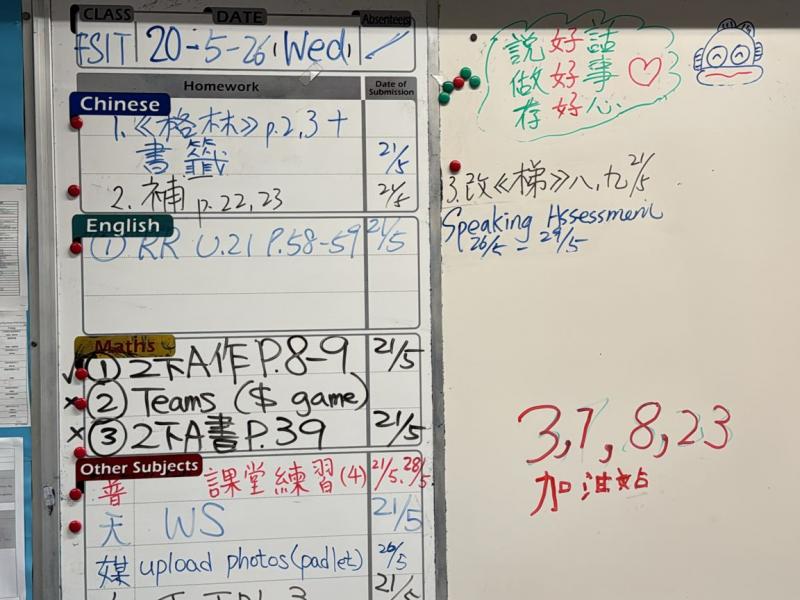 CLASS DATE Absentees
20-5-26, Wed,
Homework Date of Submission
Chinese
1. 《格林》 p.2,3 + 書籤 21/5
2. 補 p.22,23 21/5
English
① RR U.21 P.58-59 21/5
Maths
✓ ① 2下A作 P.8-9 21/5
x ② Teams ($ game)
x ③ 2下A書 P.39 21/5
Other Subjects
普 課堂練習(4) 21/5, 28/5
天 WS 21/5
媒 upload photos (padlet) 26/5
21/5
說好話
做好事
存好心
3. 改《梯》八,九 21/5
Speaking Assessment
26/5 - 29/5
3,7,8,23
加油站